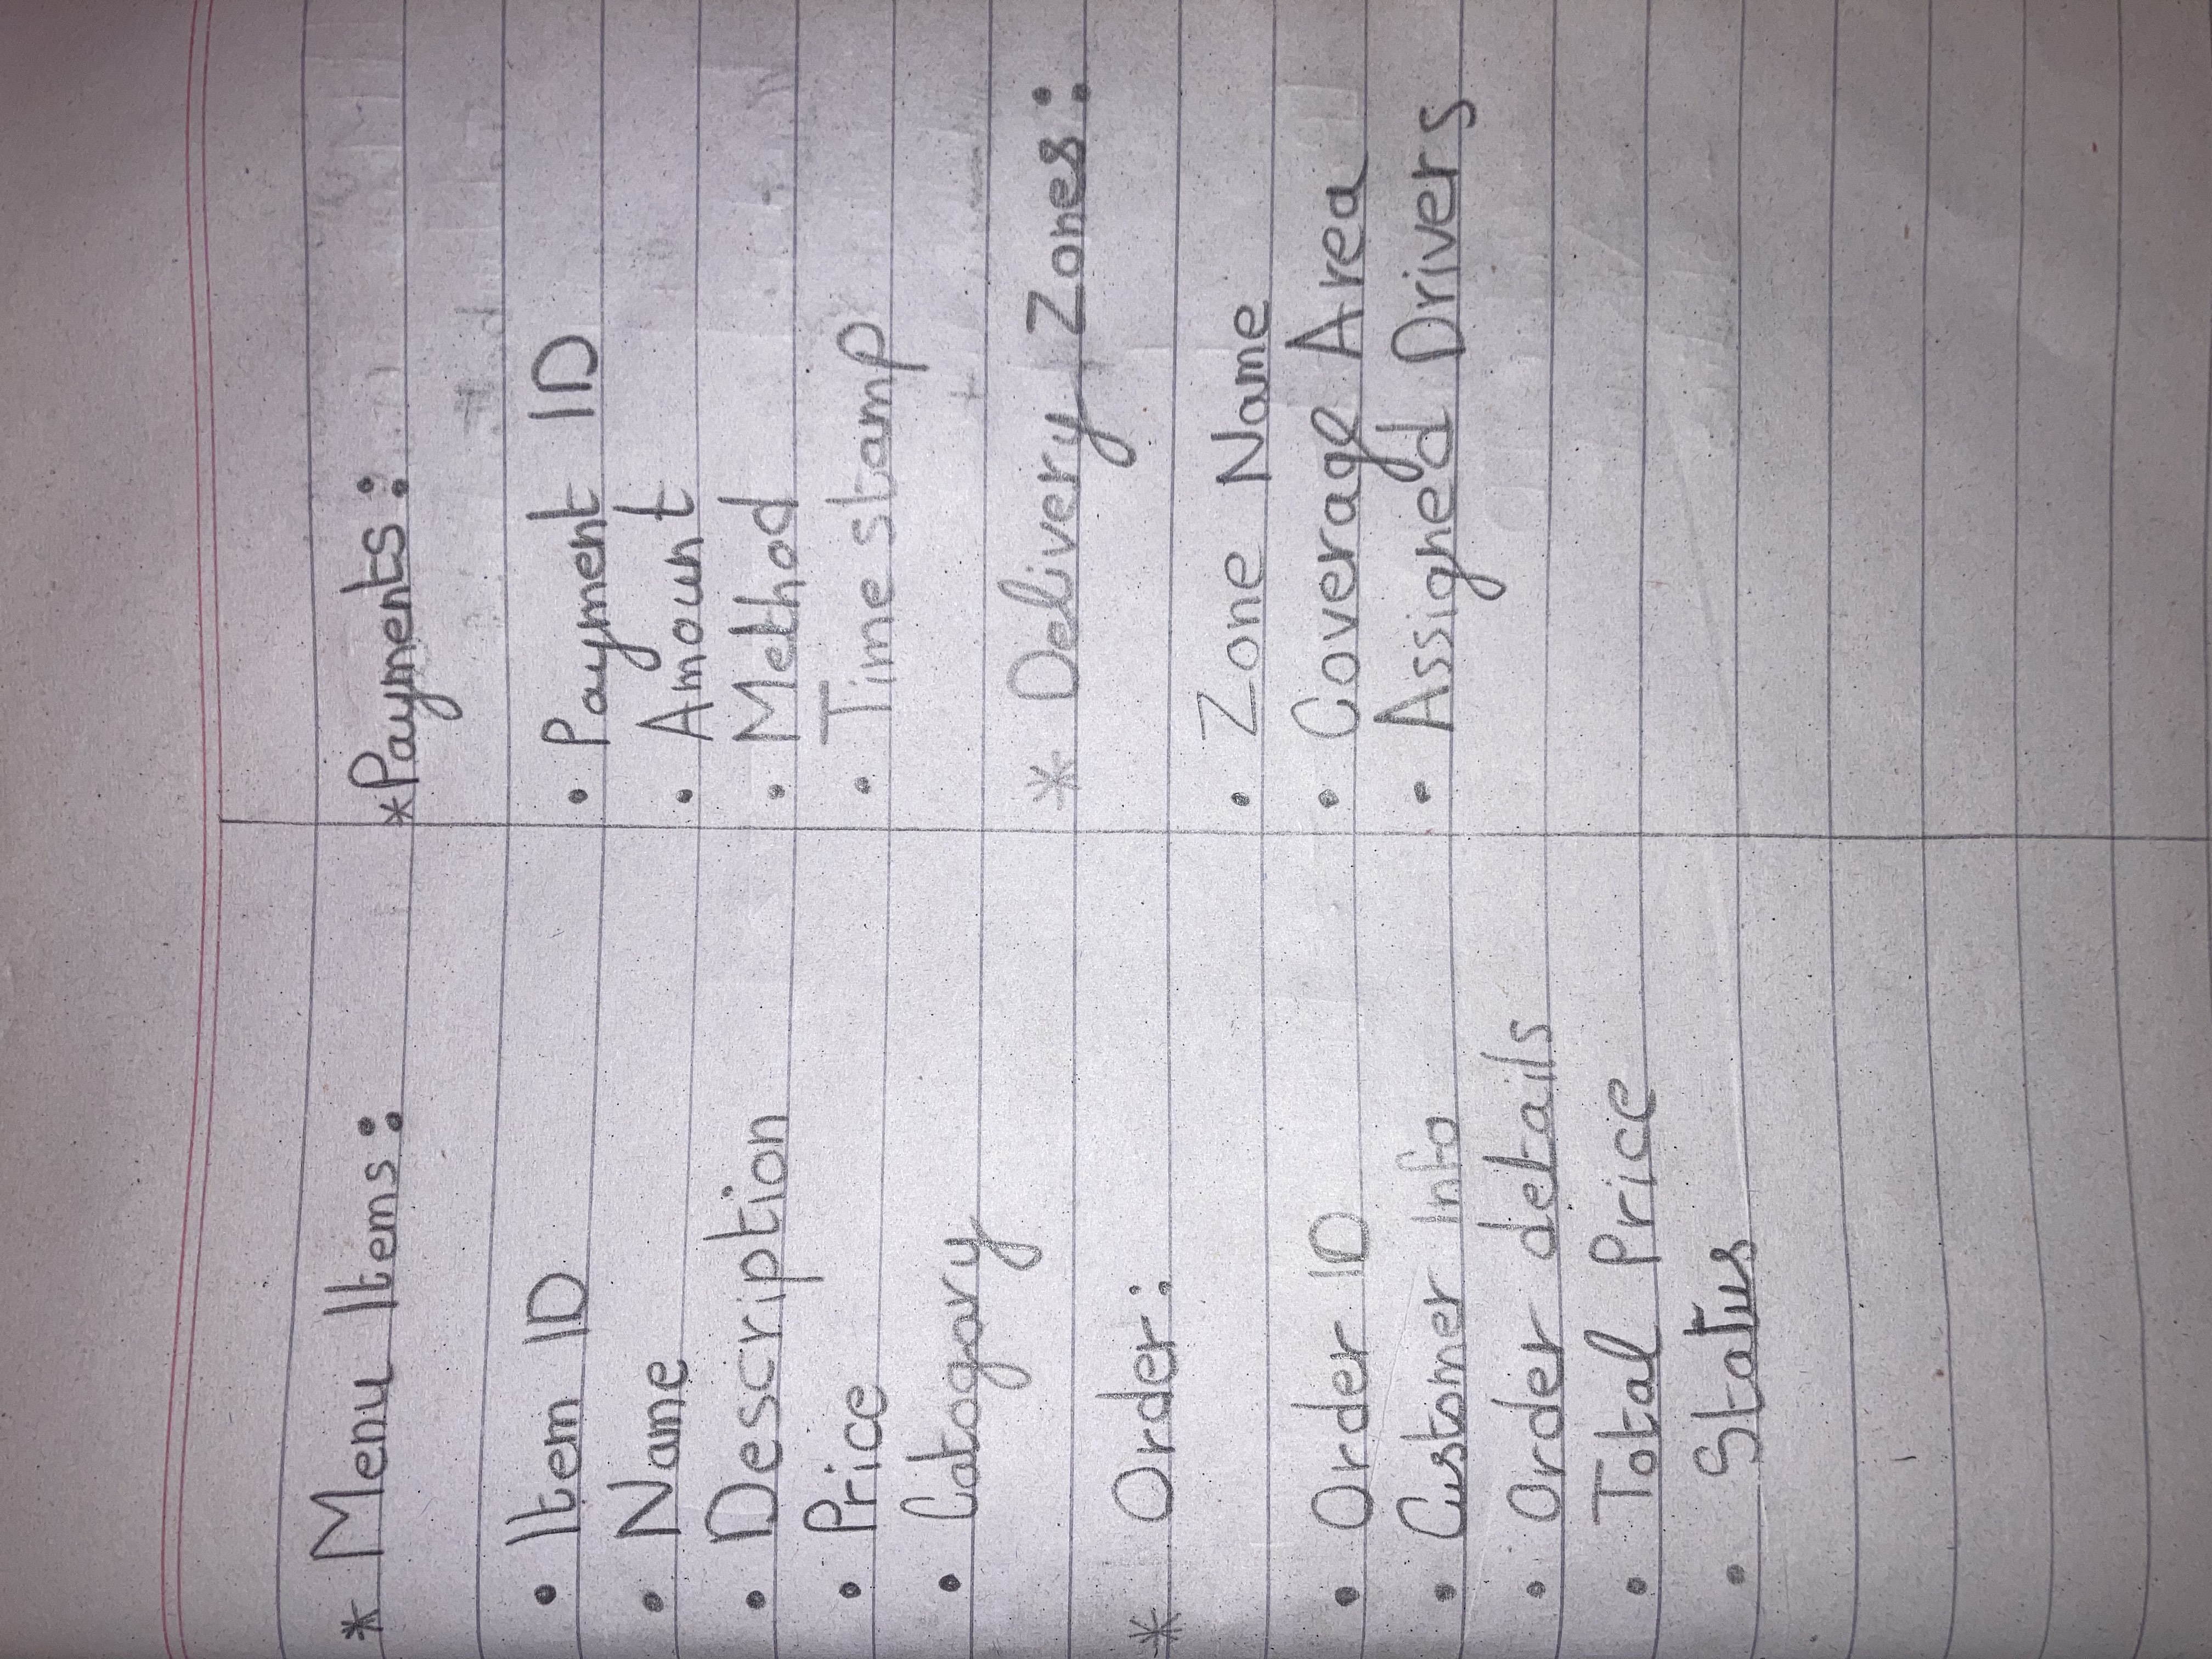 * Menu Items:
• Item ID
• Name
• Description
• Price
• Catogary
* Order:
• Order ID
• Customer Info
• Order details
• Total Price
• Status
*Payments:
• Payment ID
• Amount
• Method
• Time stamp
* Delivery Zones:
• Zone Name
• Coverage Area
• Assigned Drivers